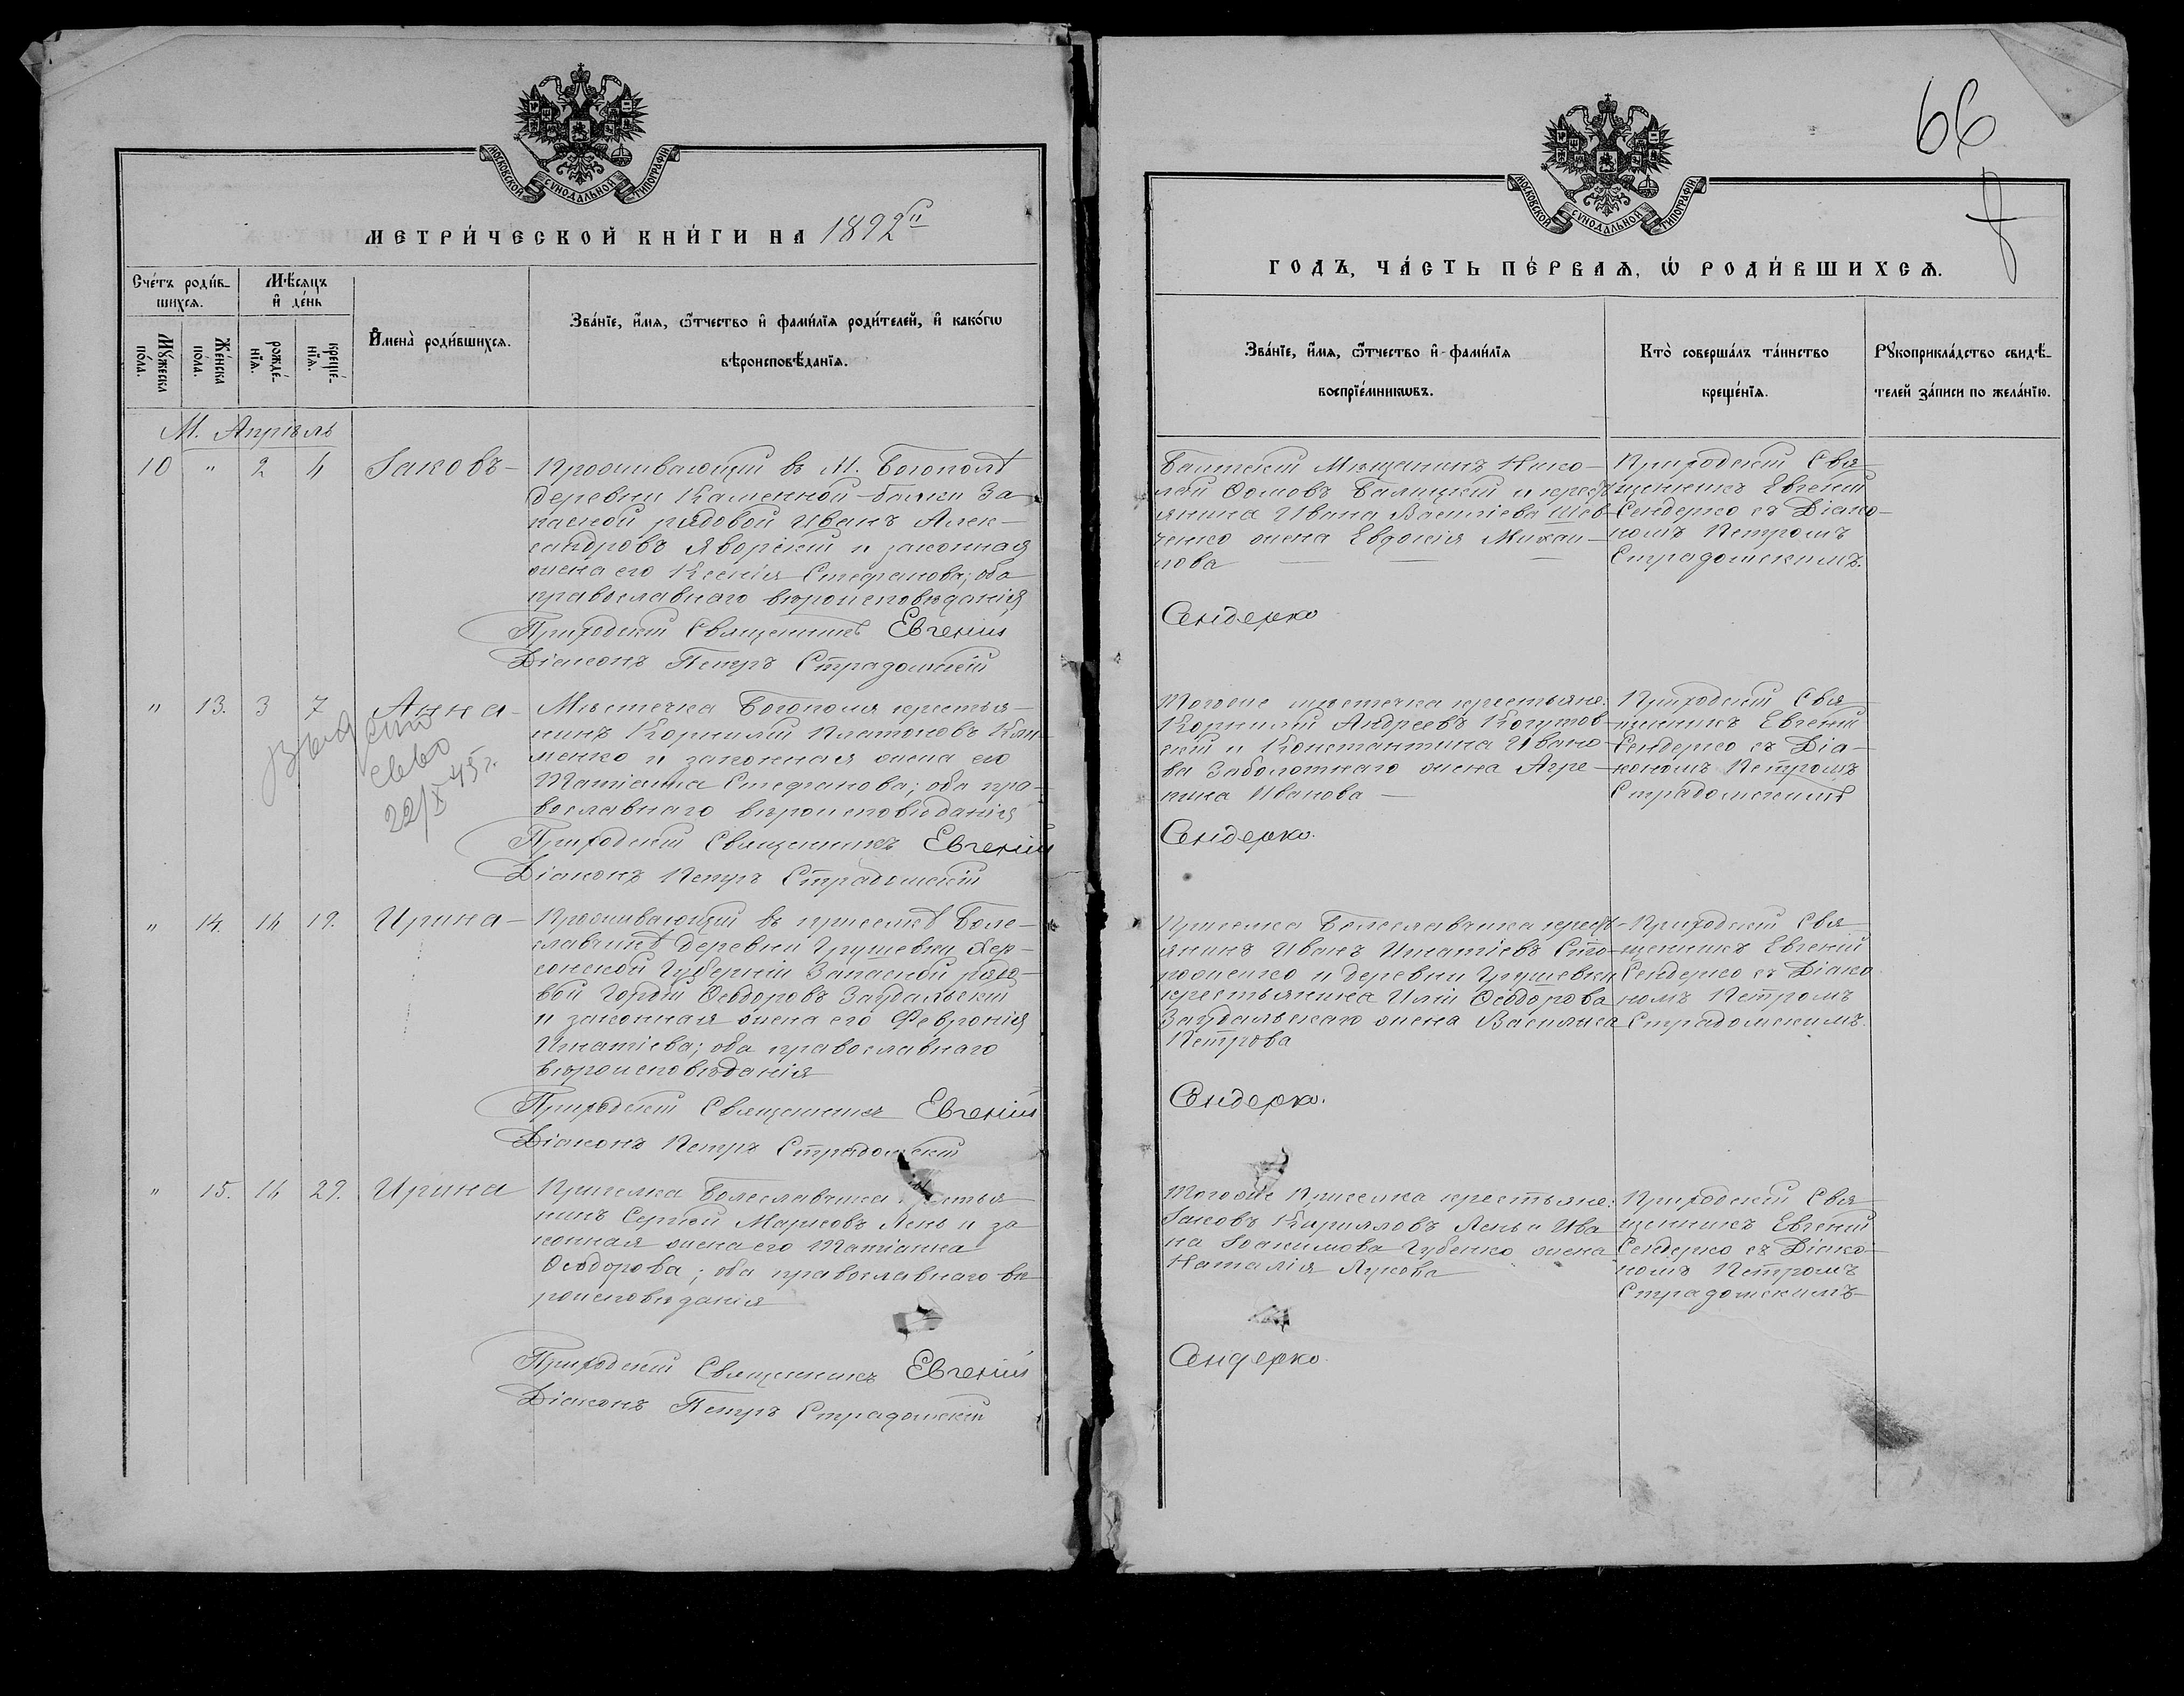 МОСКОВСКОЙ СѴНОДАЛЬНОЙ ТИПОГРАФІИ
МЕТРИ́ЧЕСКОЙ КНИ́ГИ НА 1892й
Сче́тъ роди́в-
шихсѧ.
Мѣ́сяцъ
и҆ де́нь
Мꙋ́жеска
по́ла.
Же́нска
по́ла.
рожде́-
нїѧ.
креще́-
нїѧ.
И҆мена̀ роди́вшихсѧ.
Зва́нїе, и҆́мѧ, ѻ҆́тчество и҆ фами́лїѧ роди́телей, и҆ како́гѡ
вѣроисповѣ́данїѧ.
М. Апрѣль
10 " 2 4 Іаковъ-
Проживающій въ М. Богополѣ
деревни Каменной-балки За-
пасной рядовой Иванъ Алек-
сандровъ Яворскій и законная
жена его Ксенія Стефанова; оба
православнаго вѣроисповѣданія
Приходскій Священникъ Евгеній
Діаконъ Петръ Страдомскій
" 13. 3 7 Анна-
Мѣстечка Богополя крестья-
нинъ Корнилій Платоновъ Кли-
менко и законная жена его
Татіана Стефанова; оба пра-
вославнаго вѣроисповѣданія
22/X 45 г.
Приходскій Священникъ Евгеній
Діаконъ Петръ Страдомскій
" 14. 16 19. Ирина-
Проживающій въ приселкѣ Боле-
славчикѣ деревни Грушевки Хер-
сонской Губерніи Запасной рядо-
вой Гордій Ѳеодоровъ
и законная жена его Февронія
Игнатіева; оба православнаго
вѣроисповѣданія
Приходскій Священникъ Евгеній
Діаконъ Петръ Страдомскій
" 15. 16 29. Ирина
Приселка Болеславчика крестья-
нинъ Сергей Марковъ Лень и за-
конная жена его Татіанна
Ѳеодорова; оба православнаго вѣ-
роисповѣданія
Приходскій Священникъ Евгеній
Діаконъ Петръ Страдомскій
66
МОСКОВСКОЙ СѴНОДАЛЬНОЙ ТИПОГРАФІИ
ГОДЪ, ЧА́СТЬ ПЕ́РВАѦ, Ѡ҆ РОДИ́ВШИХСѦ.
Зва́нїе, и҆́мѧ, ѻ҆́тчество и҆ фами́лїѧ
воспрїе́мникѡвъ.
Кто̀ соверша́лъ та́инство
креще́нїѧ.
Рꙋкоприкла́дство свидѣ́-
телей за́писи по жела́нїю.
Балтскій Мѣщанинъ Нико-
лай Ѳомовъ Балицкій и крест-
янина Ивана Василіева Шев-
ченко жена Евдокія Михаи-
лова
Приходскій Свя-
щенникъ Евгеній
Сендерко съ Діако-
номъ Петромъ
Страдомскимъ.
Сендерко
Тогоже мѣстечка крестьяне:
Корнилій Андреевъ Когутов-
скій и Константина Ивано-
ва Заболотнаго жена Агре-
пина Иванова
Приходскій Свя-
щенникъ Евгеній
Сендерко съ Діа-
кономъ Петромъ
Страдомскимъ
Сендерко.
Приселка Болеславчика крест-
янинъ Иванъ Игнатіевъ Сто-
роженко и деревни Грушевки
крестьянина Иліи Ѳеодорова
жена Василиса
Петрова
Приходскій Свя-
щенникъ Евгеній
Сендерко съ Діако-
номъ Петромъ
Страдомскимъ.
Сендерко.
Тогоже Приселка крестьяне:
Іаковъ Кирилловъ Лень и Ива-
на Іоакимова Губенко жена
Наталія Лукова
Приходскій Свя-
щенникъ Евгеній
Сендерко съ Діако-
номъ Петромъ
Страдомскимъ
Сендерко.